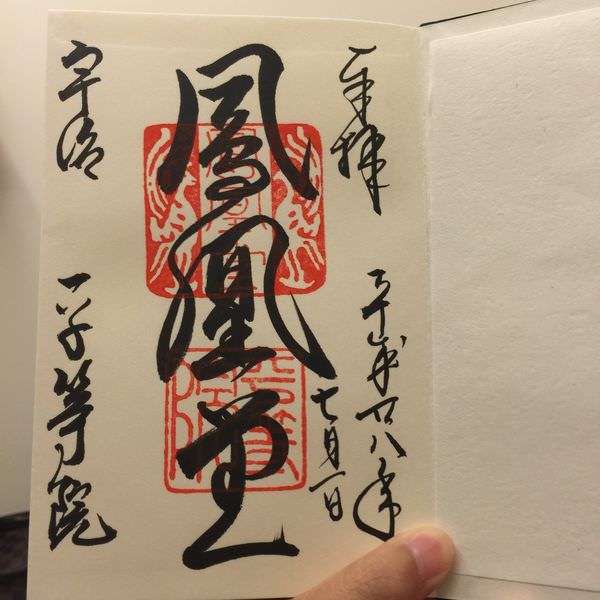 奉拝
平成廿八年
七月一日
鳳凰堂
宇治
平等院